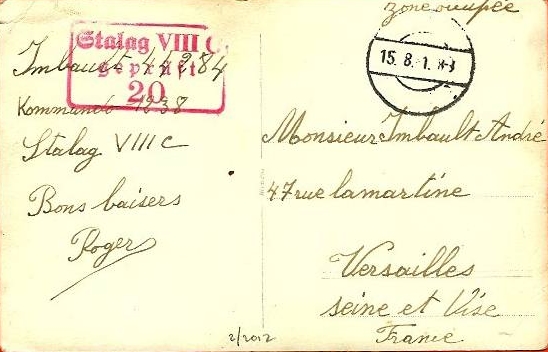 zone occupée
Stalag VIII C
geprüft
20
15.8.
Imbault 44284
Kommando 1238
Stalag VIII C
Bons baisers
Roger
Monsieur Imbault André
47 rue lamartine
Versailles
seine et Oise
France
2/2012